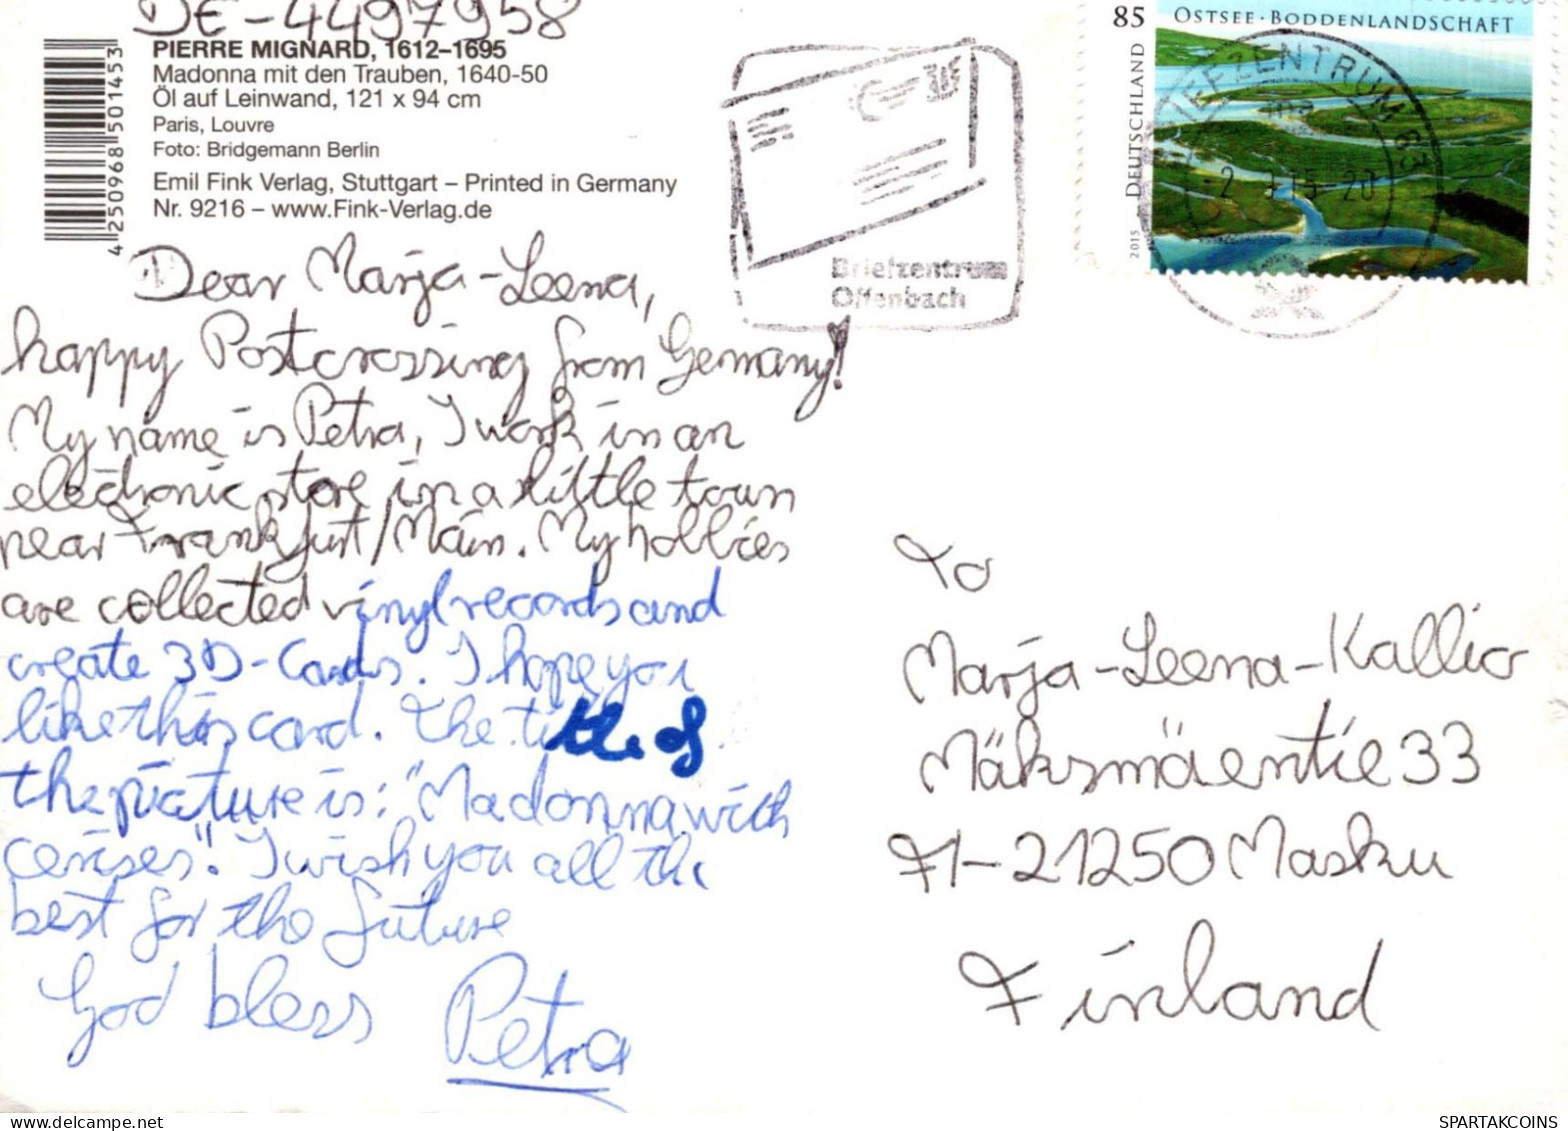 DE-4497958
PIERRE MIGNARD, 1612–1695
Madonna mit den Trauben, 1640-50
Öl auf Leinwand, 121 x 94 cm
Paris, Louvre
Foto: Bridgemann Berlin
Emil Fink Verlag, Stuttgart – Printed in Germany
Nr. 9216 – www.Fink-Verlag.de
4 250968 501453
Briefzentrum
Offenbach
85 OSTSEE · BODDENLANDSCHAFT
DEUTSCHLAND
2015
BRIEFZENTRUM 63
Dear Marja-Leena,
happy Postcrossing from Germany!
My name is Petra, I work in an
electronic store in a little town
near Frankfurt/Main. My hobbies
are collected vinyl records and
create 3D-Cards. I hope you
like this card. The title of
the picture is: "Madonna with
cerises". I wish you all the
best for the future
God bless Petra
To
Marja-Leena-Kallio
Mäksmäentie 33
FI-21250 Masku
Finland
www.delcampe.net
SPARTAKCOINS